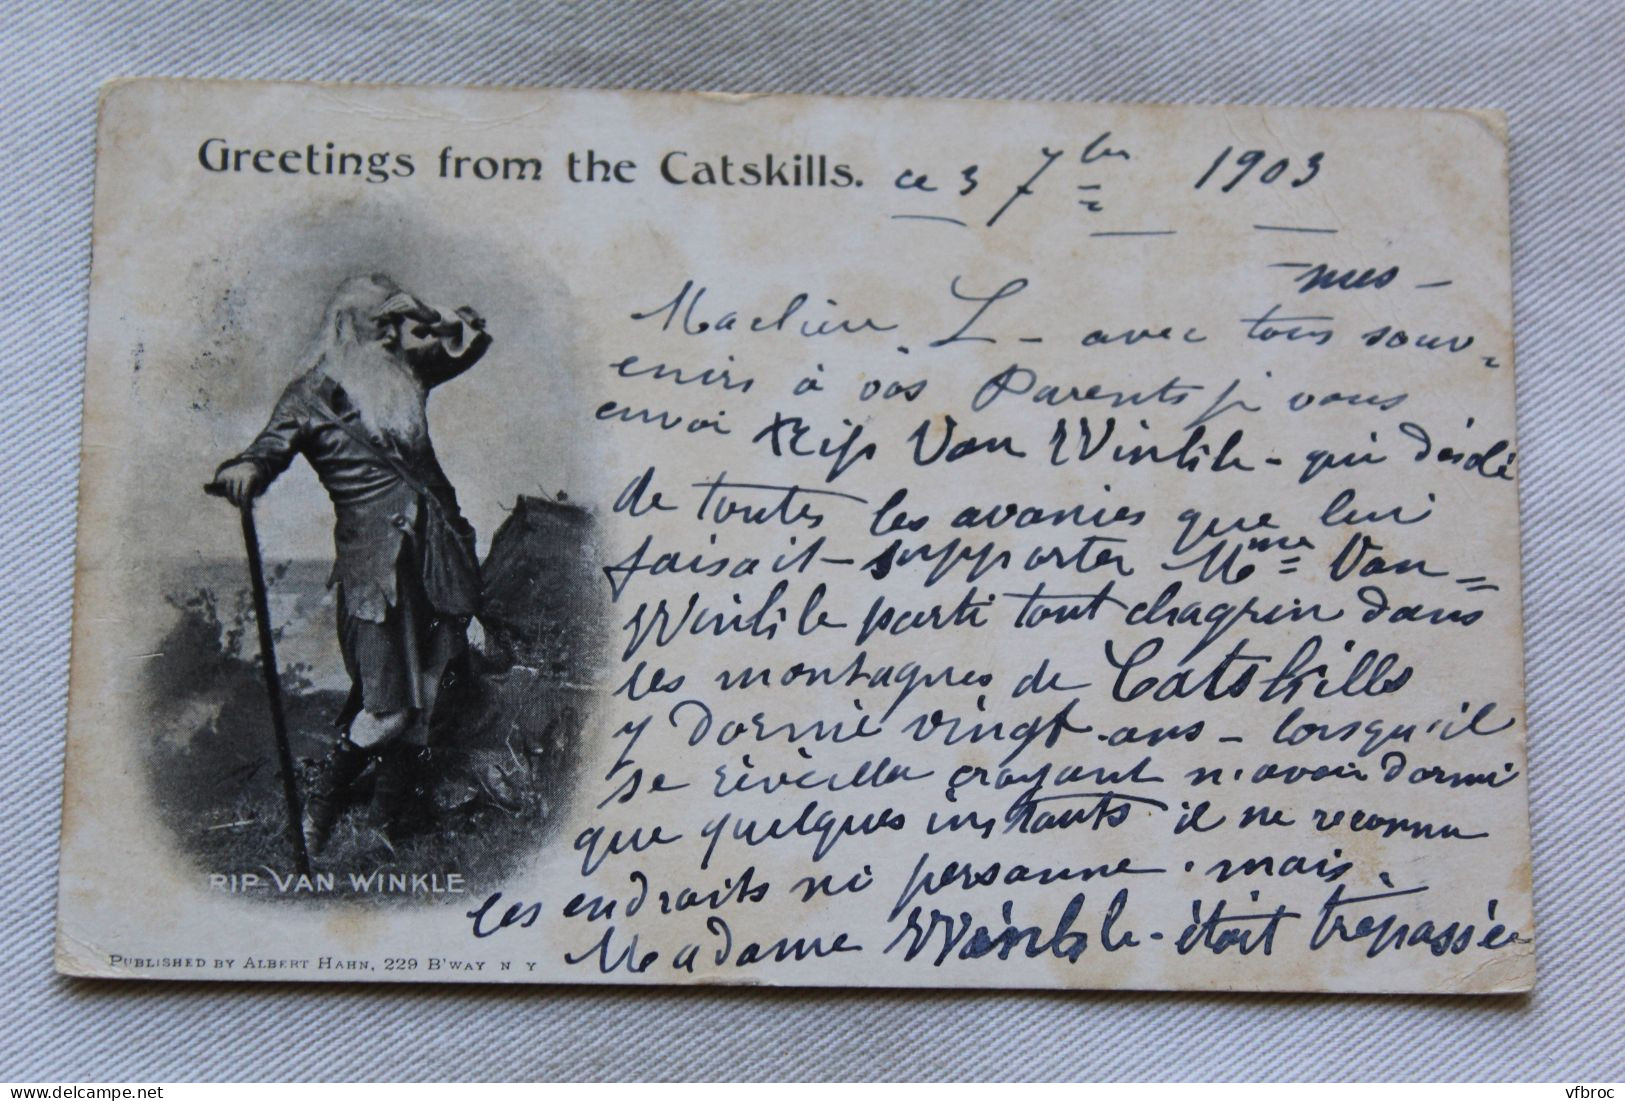 Greetings from the Catskills.
ce 3 7bre 1903
- mes -
L - avec tous souv-
enirs à vos Parents je vous
envoi Rip Van Winkle - qui désolé
de toutes les avanies que lui
faisait - supporter Mme Van
Winkle parti tout chagrin dans
les montagnes de Catskills
y dormir vingt ans - lorsqu'il
se réveilla croyant n'avoir dormi
que quelques instants il ne reconnu
les endroits ni personne. mais.
Madame Winkle - était trépassée
RIP VAN WINKLE
PUBLISHED BY ALBERT HAHN, 229 B'WAY N Y
vfbroc